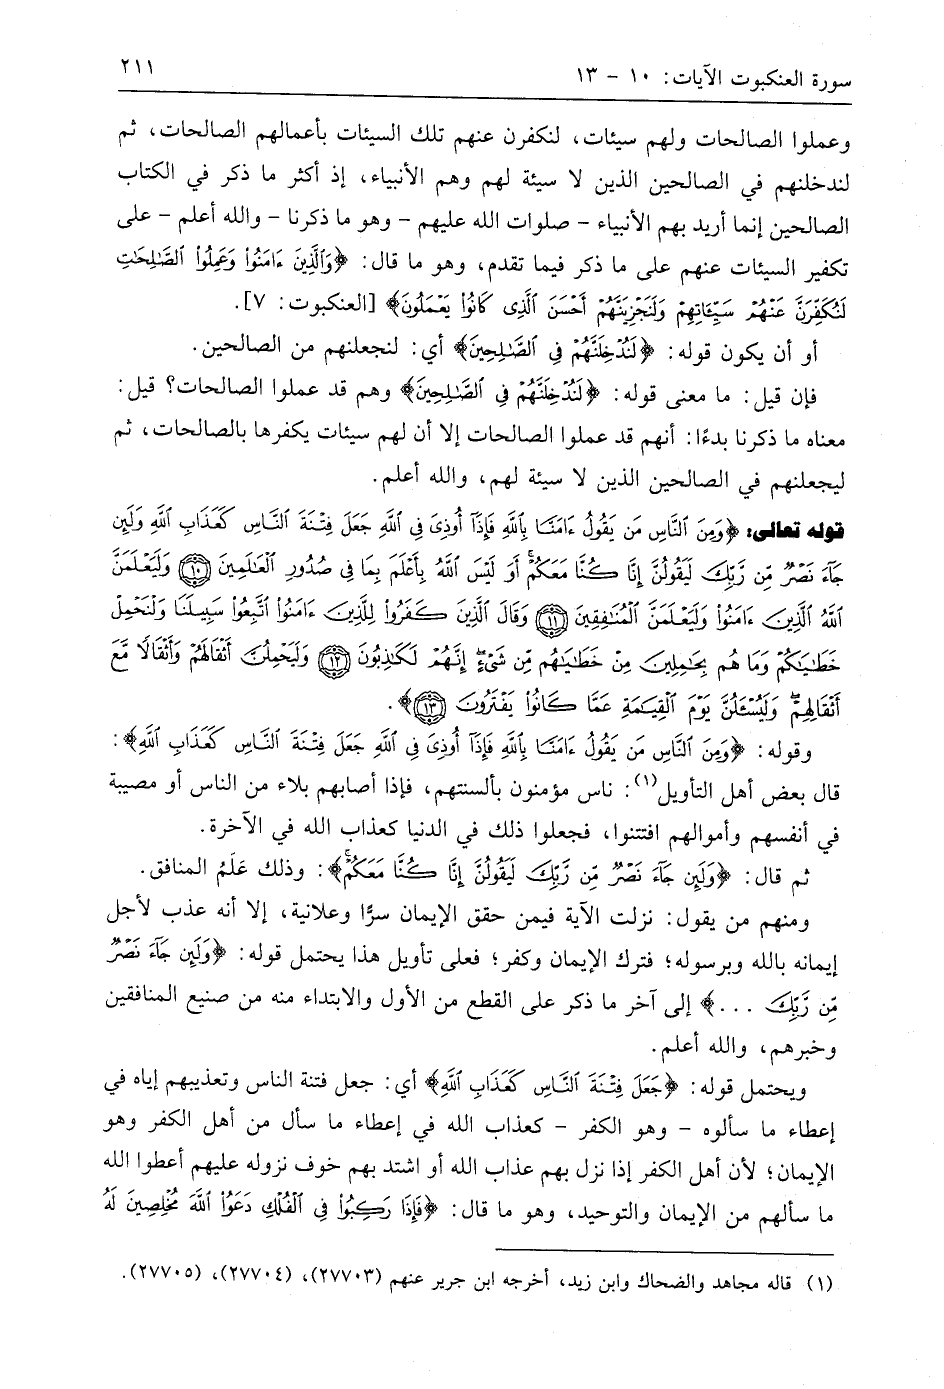 سورة العنكبوت الآيات: ١٠ - ١٣ ٢١١
وعملوا الصالحات ولهم سيئات، لنكفرن عنهم تلك السيئات بأعمالهم الصالحات، ثم
لندخلنهم في الصالحين الذين لا سيئة لهم وهم الأنبياء، إذ أكثر ما ذكر في الكتاب
الصالحين إنما أريد بهم الأنبياء - صلوات الله عليهم - وهو ما ذكرنا - والله أعلم - على
تكفير السيئات عنهم على ما ذكر فيما تقدم، وهو ما قال: ﴿وَٱلَّذِينَ ءَامَنُوا۟ وَعَمِلُوا۟ ٱلصَّـٰلِحَـٰتِ
لَنُكَفِّرَنَّ عَنْهُمْ سَيِّـَٔاتِهِمْ وَلَنَجْزِيَنَّهُمْ أَحْسَنَ ٱلَّذِى كَانُوا۟ يَعْمَلُونَ﴾ [العنكبوت: ٧].
أو أن يكون قوله: ﴿لَنُدْخِلَنَّهُمْ فِى ٱلصَّـٰلِحِينَ﴾ أي: لنجعلنهم من الصالحين.
فإن قيل: ما معنى قوله: ﴿لَنُدْخِلَنَّهُمْ فِى ٱلصَّـٰلِحِينَ﴾ وهم قد عملوا الصالحات؟ قيل:
معناه ما ذكرنا بدءًا: أنهم قد عملوا الصالحات إلا أن لهم سيئات يكفرها بالصالحات، ثم
ليجعلنهم في الصالحين الذين لا سيئة لهم، والله أعلم.
قوله تعالى: ﴿وَمِنَ ٱلنَّاسِ مَن يَقُولُ ءَامَنَّا بِٱللَّهِ فَإِذَآ أُوذِىَ فِى ٱللَّهِ جَعَلَ فِتْنَةَ ٱلنَّاسِ كَعَذَابِ ٱللَّهِ وَلَئِن
جَآءَ نَصْرٌ مِّن رَّبِّكَ لَيَقُولُنَّ إِنَّا كُنَّا مَعَكُمْ ۚ أَوَ لَيْسَ ٱللَّهُ بِأَعْلَمَ بِمَا فِى صُدُورِ ٱلْعَـٰلَمِينَ ١٠ وَلَيَعْلَمَنَّ
ٱللَّهُ ٱلَّذِينَ ءَامَنُوا۟ وَلَيَعْلَمَنَّ ٱلْمُنَـٰفِقِينَ ١١ وَقَالَ ٱلَّذِينَ كَفَرُوا۟ لِلَّذِينَ ءَامَنُوا۟ ٱتَّبِعُوا۟ سَبِيلَنَا وَلْنَحْمِلْ
خَطَـٰيَـٰكُمْ وَمَا هُم بِحَـٰمِلِينَ مِنْ خَطَـٰيَـٰهُم مِّن شَىْءٍ ۖ إِنَّهُمْ لَكَـٰذِبُونَ ١٢ وَلَيَحْمِلُنَّ أَثْقَالَهُمْ وَأَثْقَالًا مَّعَ
أَثْقَالِهِمْ ۖ وَلَيُسْـَٔلُنَّ يَوْمَ ٱلْقِيَـٰمَةِ عَمَّا كَانُوا۟ يَفْتَرُونَ ١٣﴾.
وقوله: ﴿وَمِنَ ٱلنَّاسِ مَن يَقُولُ ءَامَنَّا بِٱللَّهِ فَإِذَآ أُوذِىَ فِى ٱللَّهِ جَعَلَ فِتْنَةَ ٱلنَّاسِ كَعَذَابِ ٱللَّهِ﴾:
قال بعض أهل التأويل(١): ناس مؤمنون بألسنتهم، فإذا أصابهم بلاء من الناس أو مصيبة
في أنفسهم وأموالهم افتتنوا، فجعلوا ذلك في الدنيا كعذاب الله في الآخرة.
ثم قال: ﴿وَلَئِن جَآءَ نَصْرٌ مِّن رَّبِّكَ لَيَقُولُنَّ إِنَّا كُنَّا مَعَكُمْ ۚ﴾: وذلك عَلَمُ المنافق.
ومنهم من يقول: نزلت الآية فيمن حقق الإيمان سرًّا وعلانية، إلا أنه عذب لأجل
إيمانه بالله وبرسوله؛ فترك الإيمان وكفر؛ فعلى تأويل هذا يحتمل قوله: ﴿وَلَئِن جَآءَ نَصْرٌ
مِّن رَّبِّكَ ...﴾ إلى آخر ما ذكر على القطع من الأول والابتداء منه من صنيع المنافقين
وخبرهم، والله أعلم.
ويحتمل قوله: ﴿جَعَلَ فِتْنَةَ ٱلنَّاسِ كَعَذَابِ ٱللَّهِ﴾ أي: جعل فتنة الناس وتعذيبهم إياه في
إعطاء ما سألوه - وهو الكفر - كعذاب الله في إعطاء ما سأل من أهل الكفر وهو
الإيمان؛ لأن أهل الكفر إذا نزل بهم عذاب الله أو اشتد بهم خوف نزوله عليهم أعطوا الله
ما سألهم من الإيمان والتوحيد، وهو ما قال: ﴿فَإِذَا رَكِبُوا۟ فِى ٱلْفُلْكِ دَعَوُا۟ ٱللَّهَ مُخْلِصِينَ لَهُ
(١) قاله مجاهد والضحاك وابن زيد، أخرجه ابن جرير عنهم (٢٧٧٠٣)، (٢٧٧٠٤)، (٢٧٧٠٥).